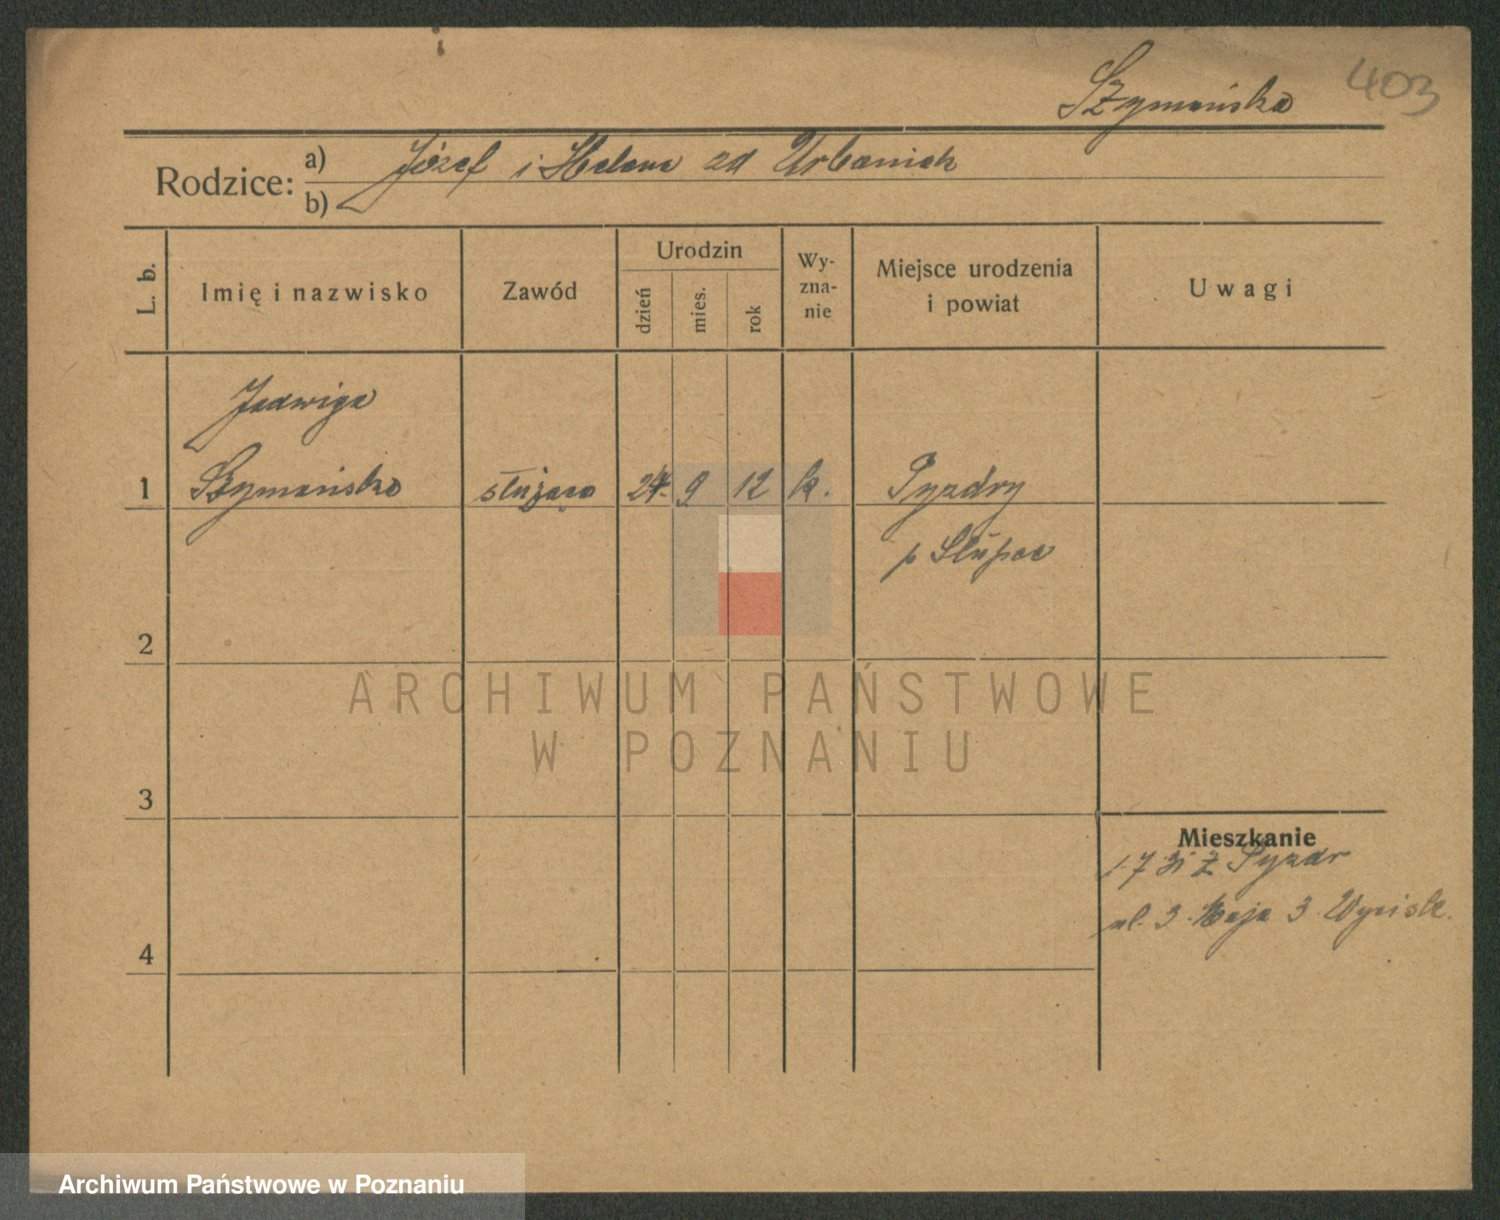 403
Szymańska
Rodzice: a) Józef i Helena zd Urbaniak
b)
L. b.
Imię i nazwisko
Zawód
Urodzin
dzień
mies.
rok
Wy-
zna-
nie
Miejsce urodzenia
i powiat
Uwagi
Jadwiga
1 Szymańska służąca 24. 9 12 k. Pyzdry
p Słupca
2
3
4
Mieszkanie
1.7 31 z Pyzdr
ul. 3 Maja 3
ARCHIWUM PAŃSTWOWE
W POZNANIU
Archiwum Państwowe w Poznaniu